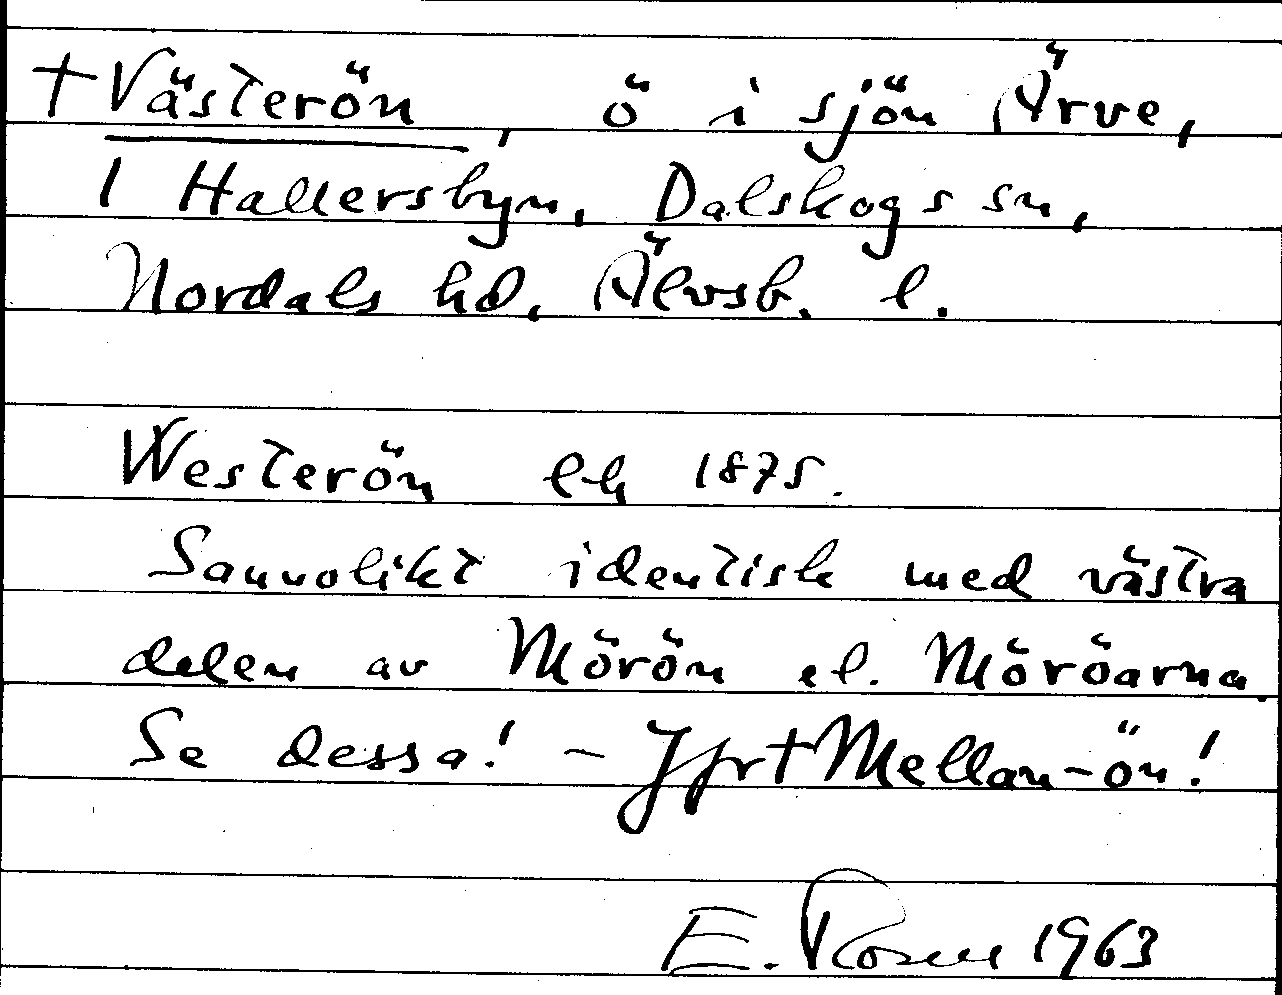 †Västerön, ö i sjön Ärve,
I Hallersbyn, Dalskogs sn,
Nordals hd, Älvsb. l.
Westerön Ek 1875.
Sannolikt identisk med västra
delen av Mörön el. Möröarna.
Se dessa! - Jfr † Mellan-ön!
E. Rosen 1963